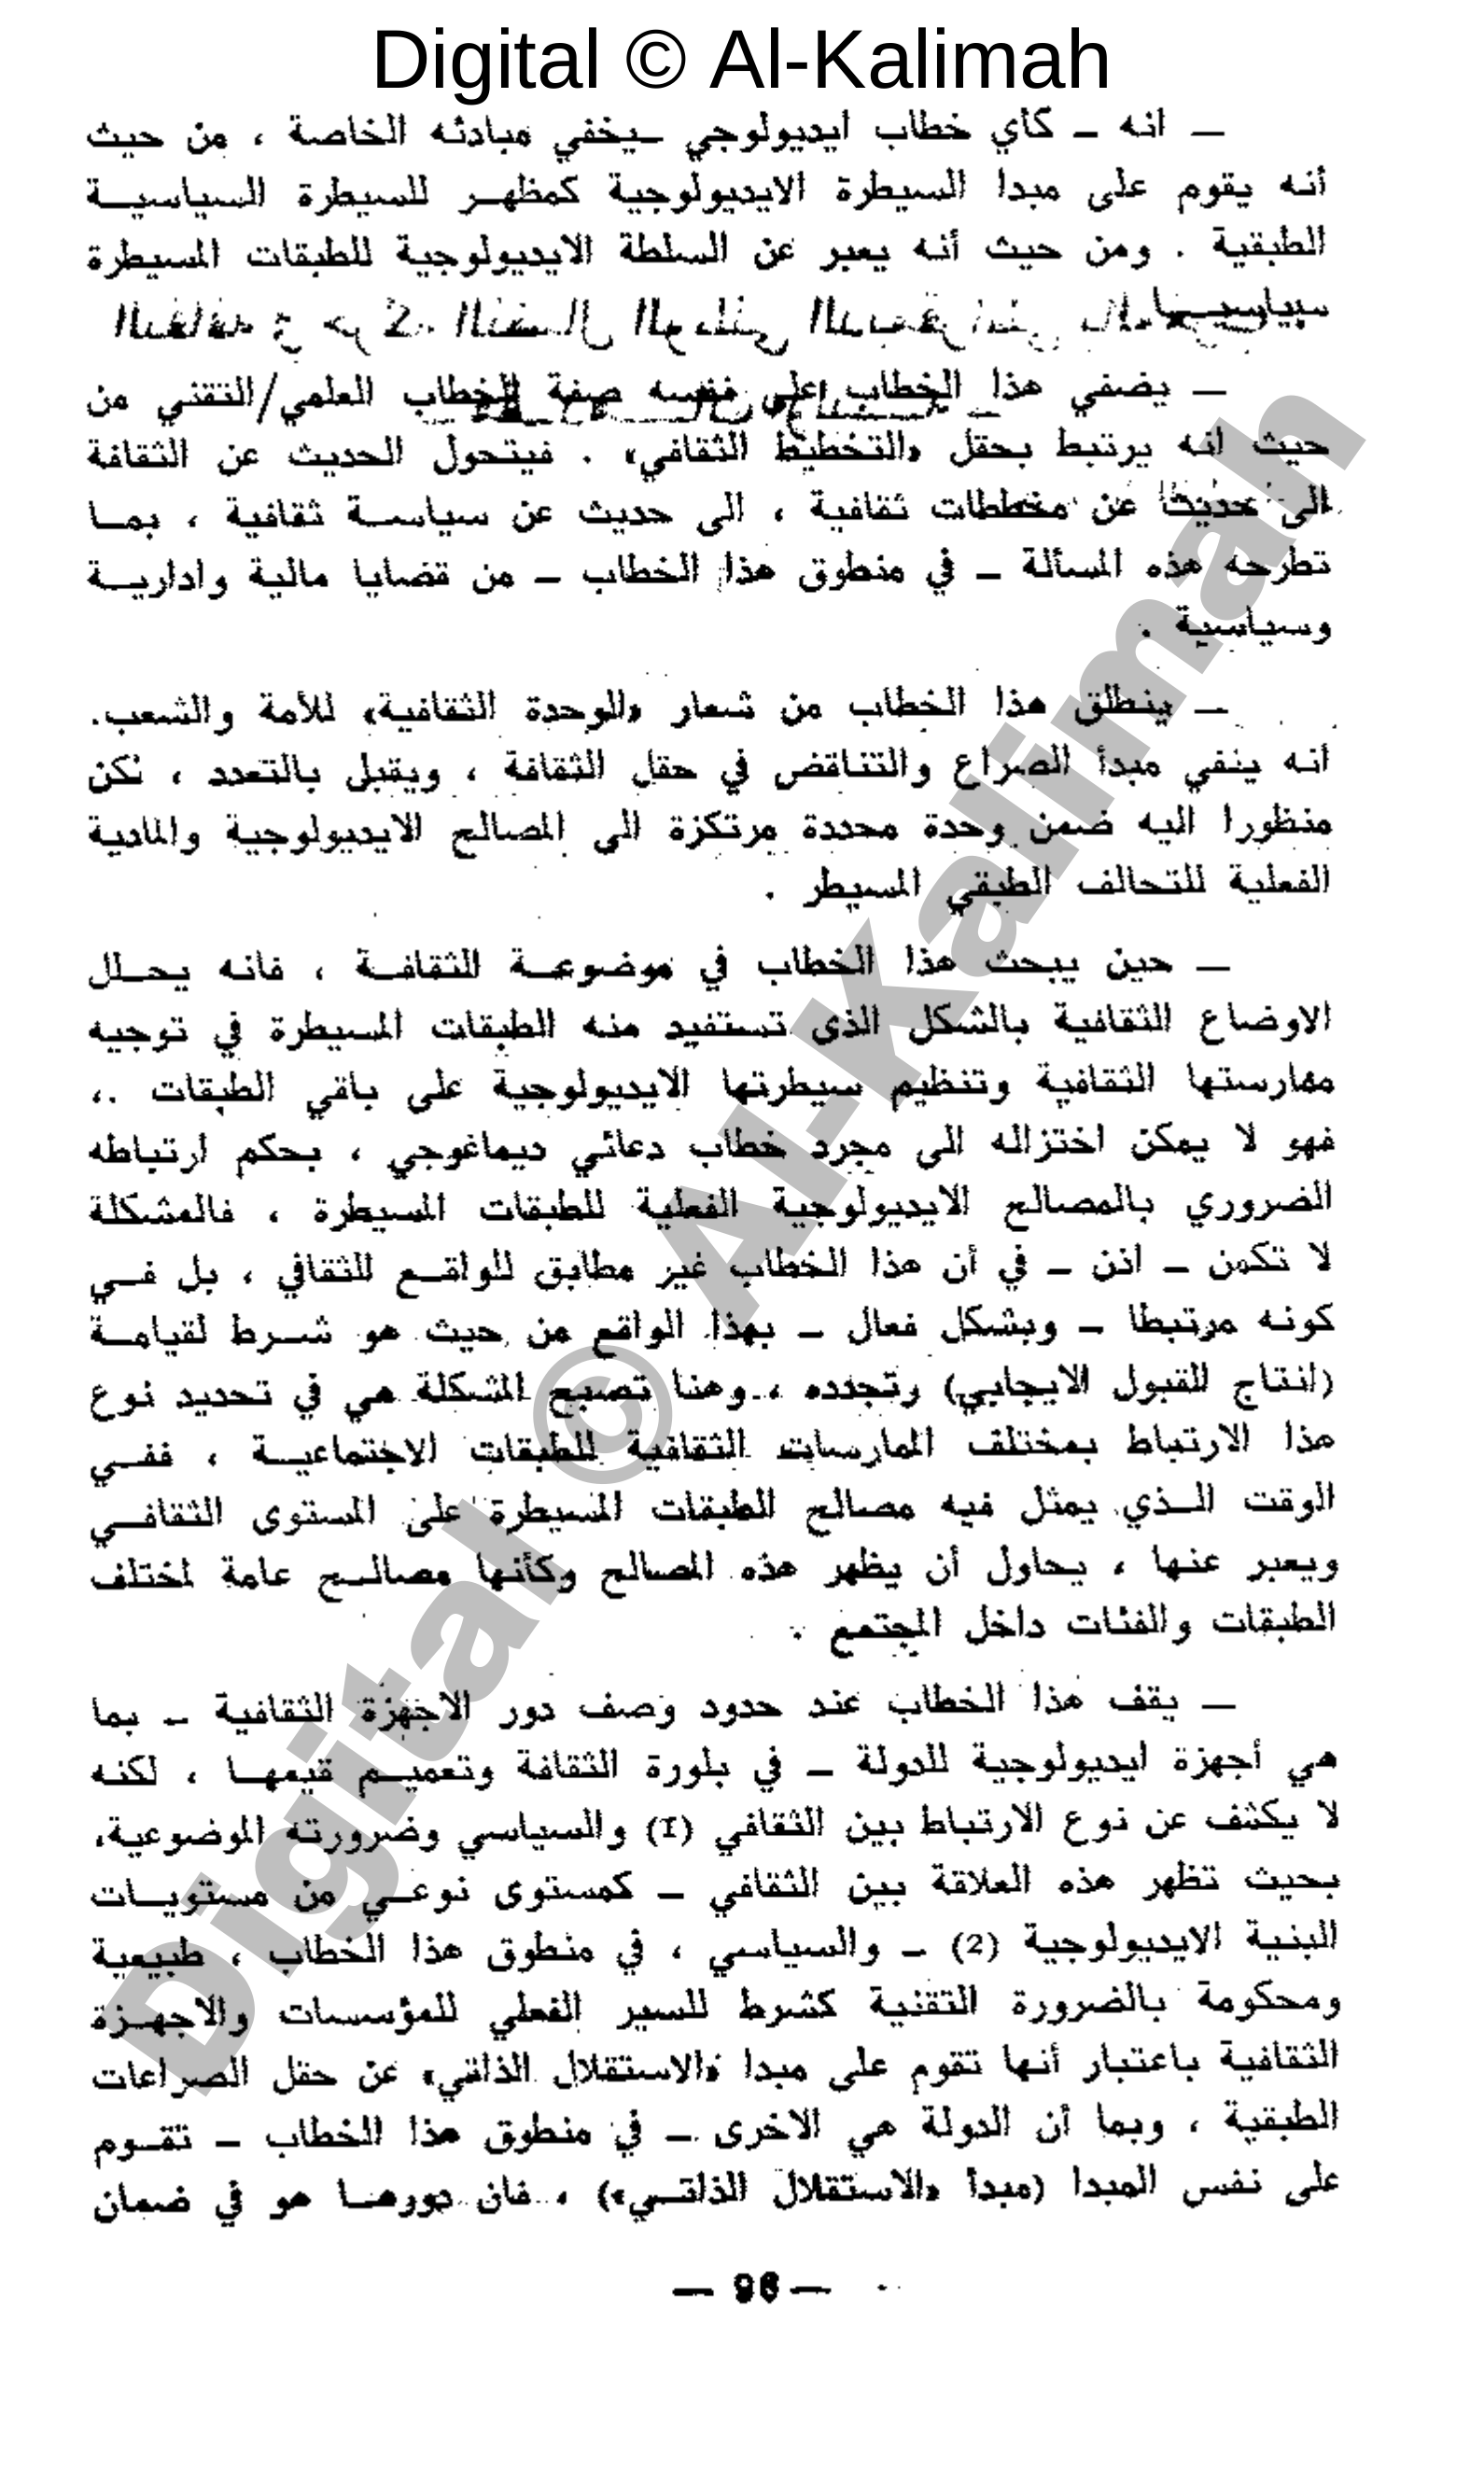 Digital © Al-Kalimah
ــ انه ــ كأي خطاب ايديولوجي ــيخفي مبادئه الخاصة ، من حيث
أنه يقوم على مبدا السيطرة الايديولوجية كمظهر للسيطرة السياسية
الطبقية . ومن حيث أنه يعبر عن السلطة الايديولوجية للطبقات المسيطرة
سياسيا
ــ يضفي هذا الخطاب على نفسه صفة الخطاب العلمي/التقني من
حيث انه يرتبط بحقل «التخطيط الثقافي» . فيتحول الحديث عن الثقافة
الى حديث عن مخططات ثقافية ، الى حديث عن سياسة ثقافية ، بما
تطرحه هذه المسألة ــ في منطوق هذا الخطاب ــ من قضايا مالية وادارية
وسياسية .
ــ ينطلق هذا الخطاب من شعار «الوحدة الثقافية» للأمة والشعب.
أنه ينفي مبدأ الصراع والتناقض في حقل الثقافة ، ويقبل بالتعدد ، لكن
منظورا اليه ضمن وحدة محددة مرتكزة الى المصالح الايديولوجية والمادية
الفعلية للتحالف الطبقي المسيطر .
ــ حين يبحث هذا الخطاب في موضوعة الثقافة ، فانه يحلل
الاوضاع الثقافية بالشكل الذى تستفيد منه الطبقات المسيطرة في توجيه
ممارستها الثقافية وتنظيم سيطرتها الايديولوجية على باقي الطبقات .،
فهو لا يمكن اختزاله الى مجرد خطاب دعائي ديماغوجي ، بحكم ارتباطه
الضروري بالمصالح الايديولوجية الفعلية للطبقات المسيطرة ، فالمشكلة
لا تكمن ــ اذن ــ في أن هذا الخطاب غير مطابق للواقع للثقافي ، بل في
كونه مرتبطا ــ وبشكل فعال ــ بهذا الواقع من حيث هو شرط لقيامة
(انتاج للقبول الايجابي) وتجدده ، وهنا تصبح المشكلة هي في تحديد نوع
هذا الارتباط بمختلف الممارسات الثقافية للطبقات الاجتماعية ، ففي
الوقت الذي يمثل فيه مصالح الطبقات المسيطرة على المستوى الثقافي
ويعبر عنها ، يحاول أن يظهر هذه المصالح وكأنها مصالح عامة لمختلف
الطبقات والفئات داخل المجتمع .
ــ يقف هذا الخطاب عند حدود وصف دور الاجهزة الثقافية ــ بما
هي أجهزة ايديولوجية للدولة ــ في بلورة الثقافة وتعميم قيمها ، لكنه
لا يكشف عن نوع الارتباط بين الثقافي (1) والسياسي وضرورته الموضوعية،
بحيث تظهر هذه العلاقة بين الثقافي ــ كمستوى نوعي من مستويات
البنية الايديولوجية (2) ــ والسياسي ، في منطوق هذا الخطاب ، طبيعية
ومحكومة بالضرورة التقنية كشرط للسير الفعلي للمؤسسات والاجهزة
الثقافية باعتبار أنها تقوم على مبدا «الاستقلال الذاتي» عن حقل الصراعات
الطبقية ، وبما أن الدولة هي الاخرى ــ في منطوق هذا الخطاب ــ تقوم
على نفس المبدا (مبدأ «الاستقلال الذاتي») ، فان دورها هو في ضمان
— 96 —
Digital © Al-Kalimah